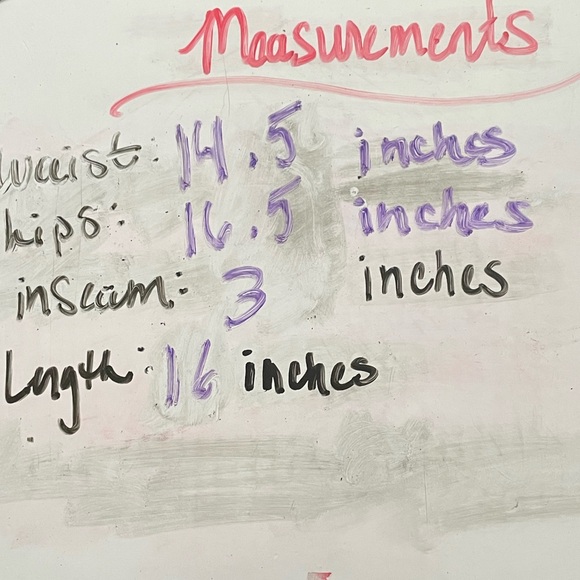 Measurements
waist: 14.5 inches
hips: 16.5 inches
inseam: 3 inches
Length: 16 inches